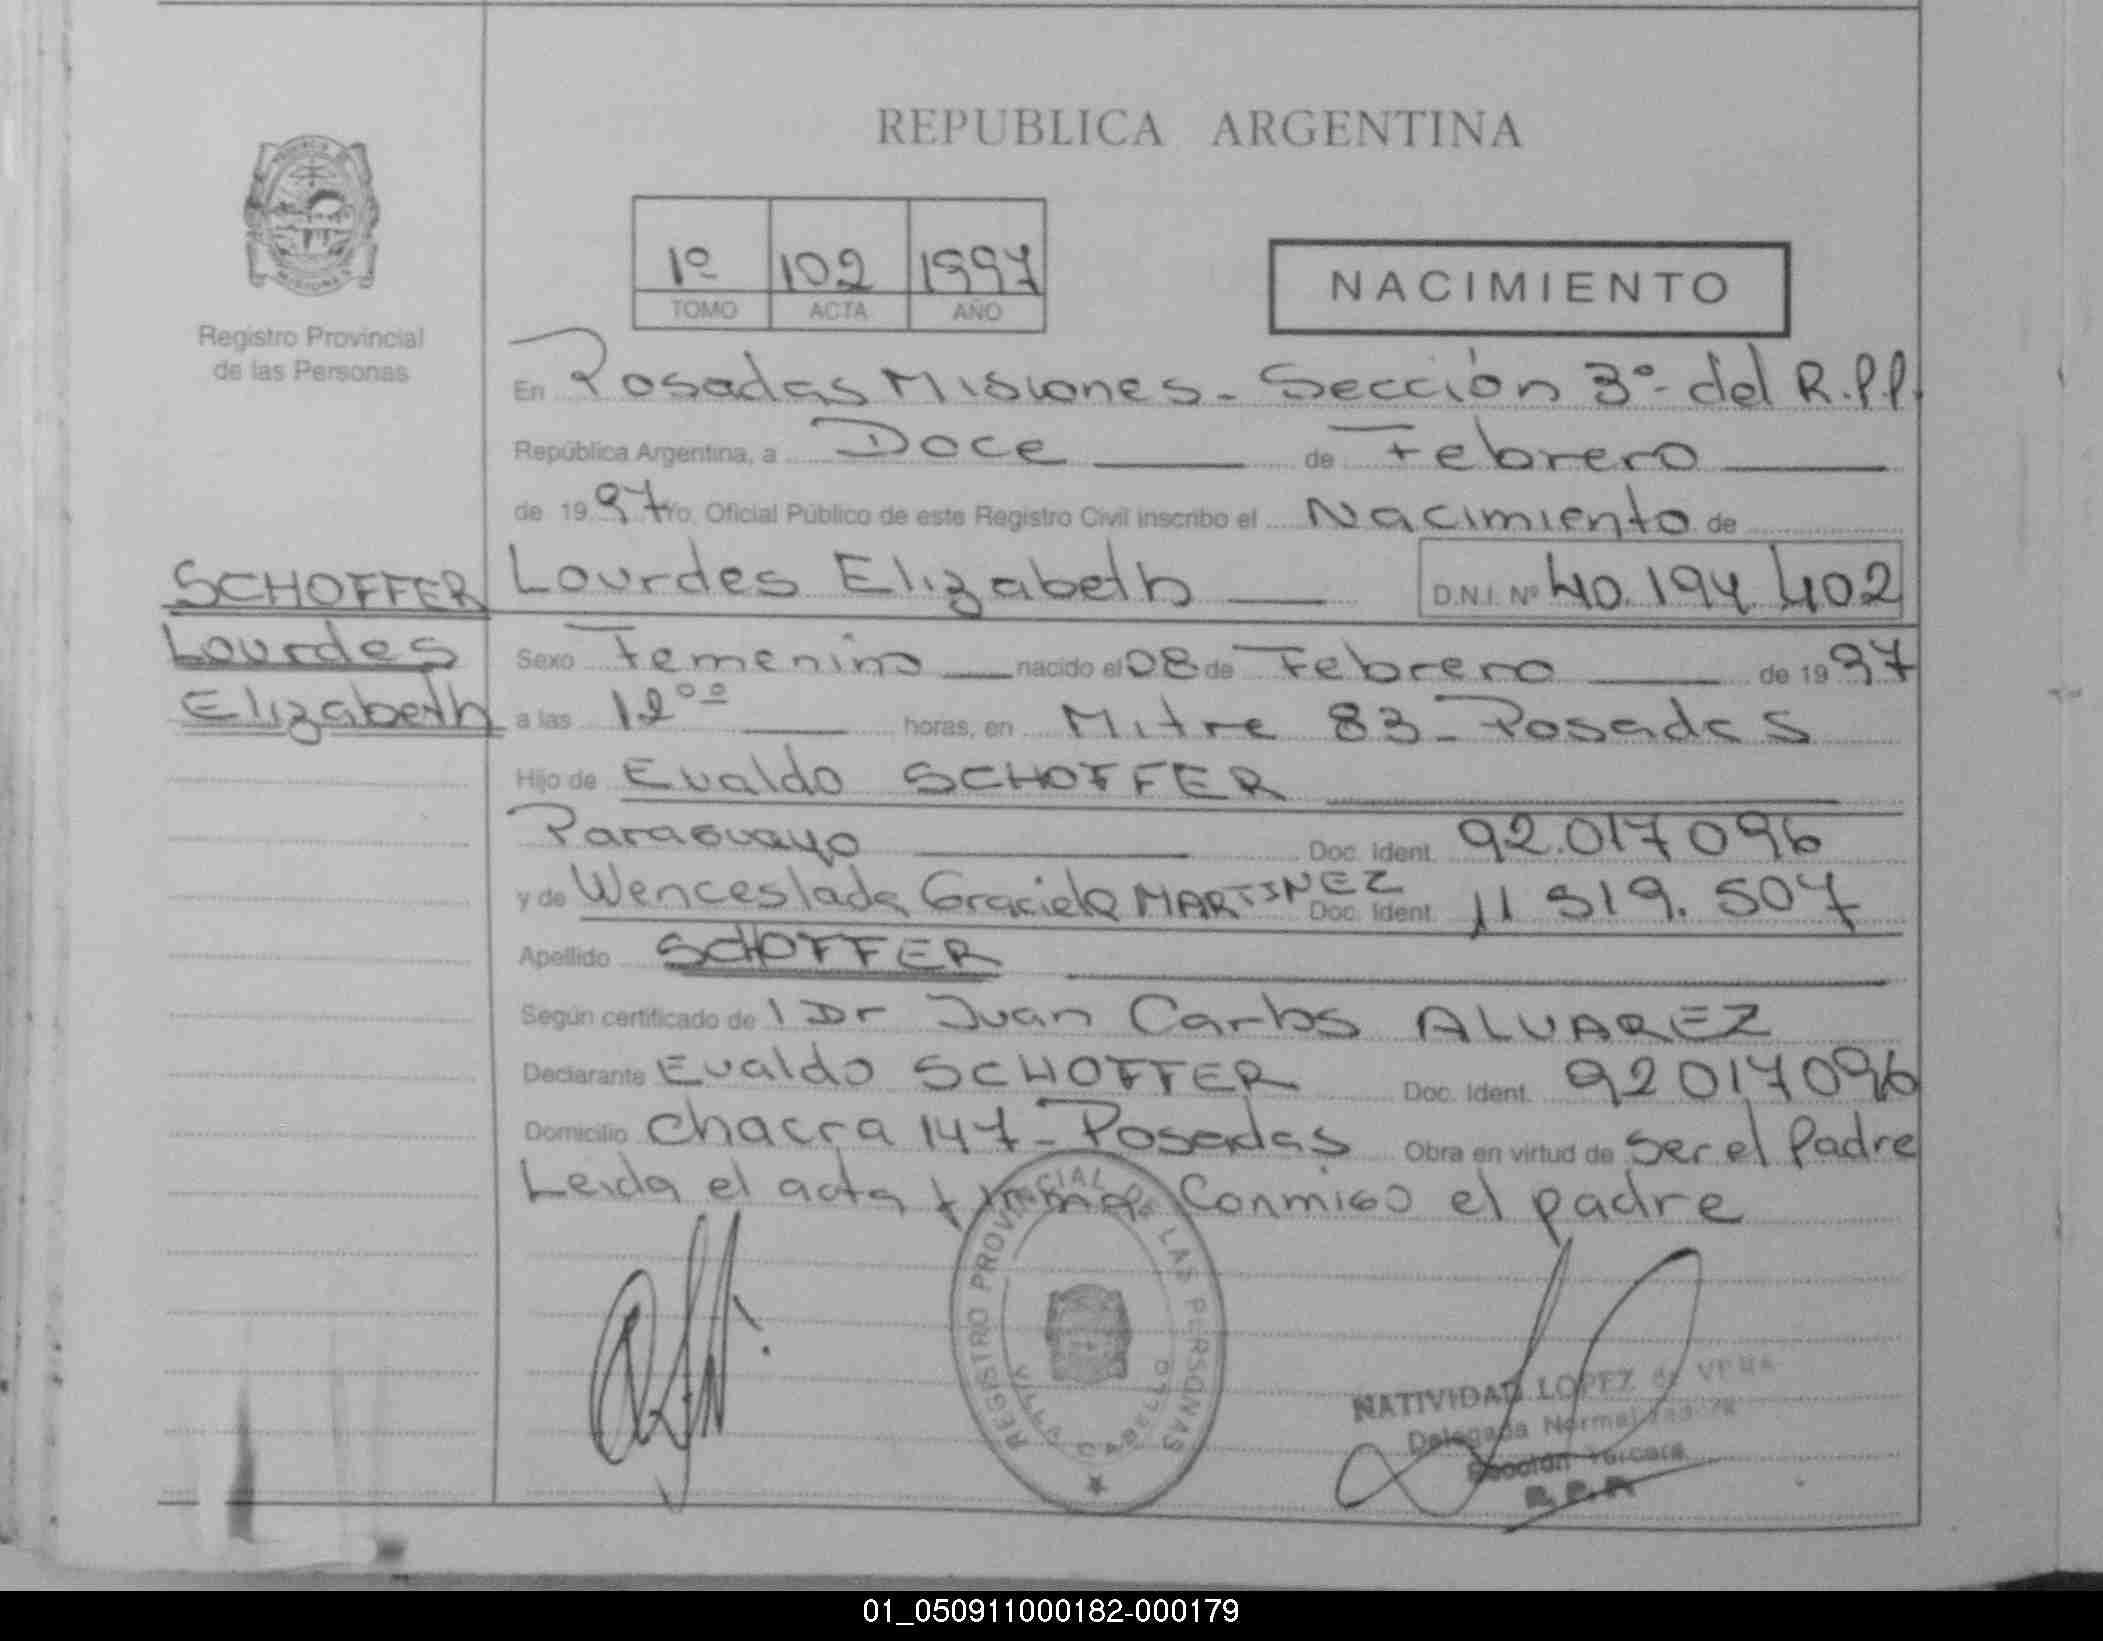 REPUBLICA ARGENTINA
1º 102 1997
TOMO ACTA AÑO
NACIMIENTO
Registro Provincial
de las Personas
En Posadas Misiones - Sección 3º - del R.P.P.
República Argentina, a Doce de Febrero
de 1997 Yo, Oficial Público de este Registro Civil inscribo el Nacimiento de
Lourdes Elizabeth D.N.I. Nº 40.194.402
SCHOFFER
Lourdes
Elizabeth
Sexo Femenino nacido el 08 de Febrero de 1997
a las 12ºº horas, en Mitre 83 - Posadas
Hijo de Evaldo SCHOFFER
Paraguayo Doc. Ident. 92.017096
y de Wenceslada Graciela MARTINEZ Doc. Ident. 11 519.507
Apellido SCHOFFER
Según certificado de l Dr Juan Carlos ALVAREZ
Declarante Evaldo SCHOFFER Doc. Ident. 92017096
Domicilio Chacra 147 - Posadas Obra en virtud de ser el Padre
Leida el acta firma Conmigo el padre
REGISTRO PROVINCIAL DE LAS PERSONAS
VILLA CABELLO
NATIVIDAD LOPEZ de
Delegada Normalizadora
Sección Tercera
R.P.P.
01_050911000182-000179